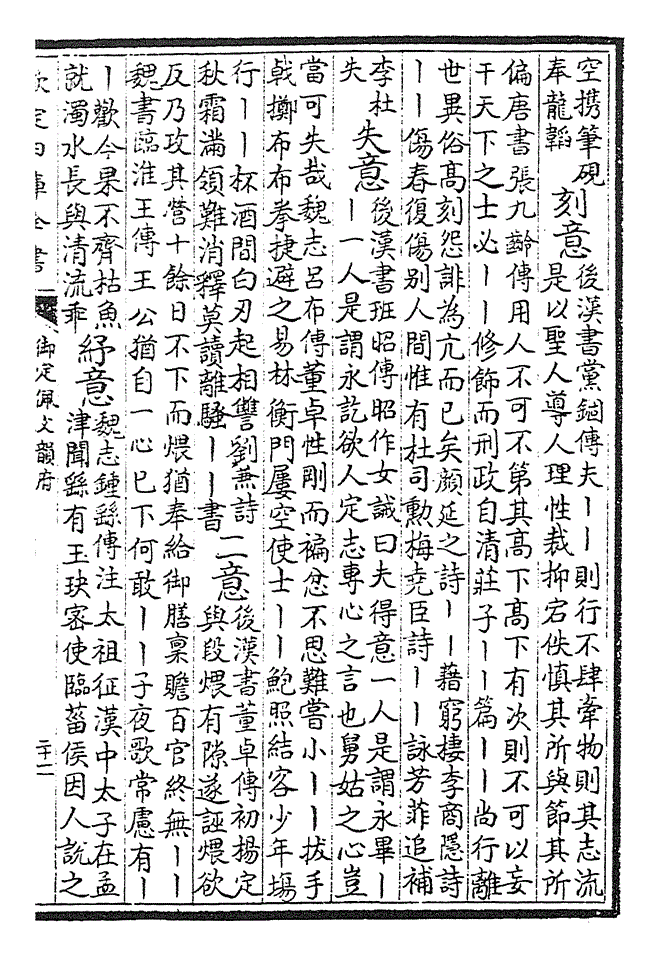 空携筆硯
奉龍韜
刻意
後漢書黨錮傳夫丨丨則行不肆牽物則其志流
是以聖人導人理性裁抑宕佚慎其所與節其所
偏唐書張九齡傳用人不可不第其高下高下有次則不可以妄
干天下之士必丨丨修飾而刑政自清莊子丨丨篇丨丨尚行離
世異俗髙刻怨誹為亢而已矣顔延之詩丨丨藉窮棲李商隱詩
丨丨傷春復傷别人間惟有杜司勲梅堯臣詩丨丨詠芳菲追補
李杜
失
失意
後漢書班昭傳昭作女誡曰夫得意一人是謂永畢丨
丨一人是謂永訖欲人定志専心之言也舅姑之心豈
當可失哉魏志吕布傳董卓性剛而褊忿不思難嘗小丨丨拔手
戟擲布布拳捷避之易林衡門屢空使士丨丨鮑照結客少年塲
行丨丨杯酒間白刃起相讐劉兼詩
秋霜滿領難消釋莫讀離騷丨丨書
二意
後漢書董卓傳初楊定
與段煨有隙遂誣煨欲
反乃攻其營十餘日不下而煨猶奉給御膳稟贍百官終無丨丨
魏書臨淮王傳王公猶自一心已下何敢丨丨子夜歌常慮有丨
丨歡今果不齊枯魚
就濁水長與清流乖
紓意
魏志鍾繇傳注太祖征漢中太子在孟
津聞繇有玉玦密使臨菑侯因人說之
欽定四庫全書
御定佩文韻府
二十二